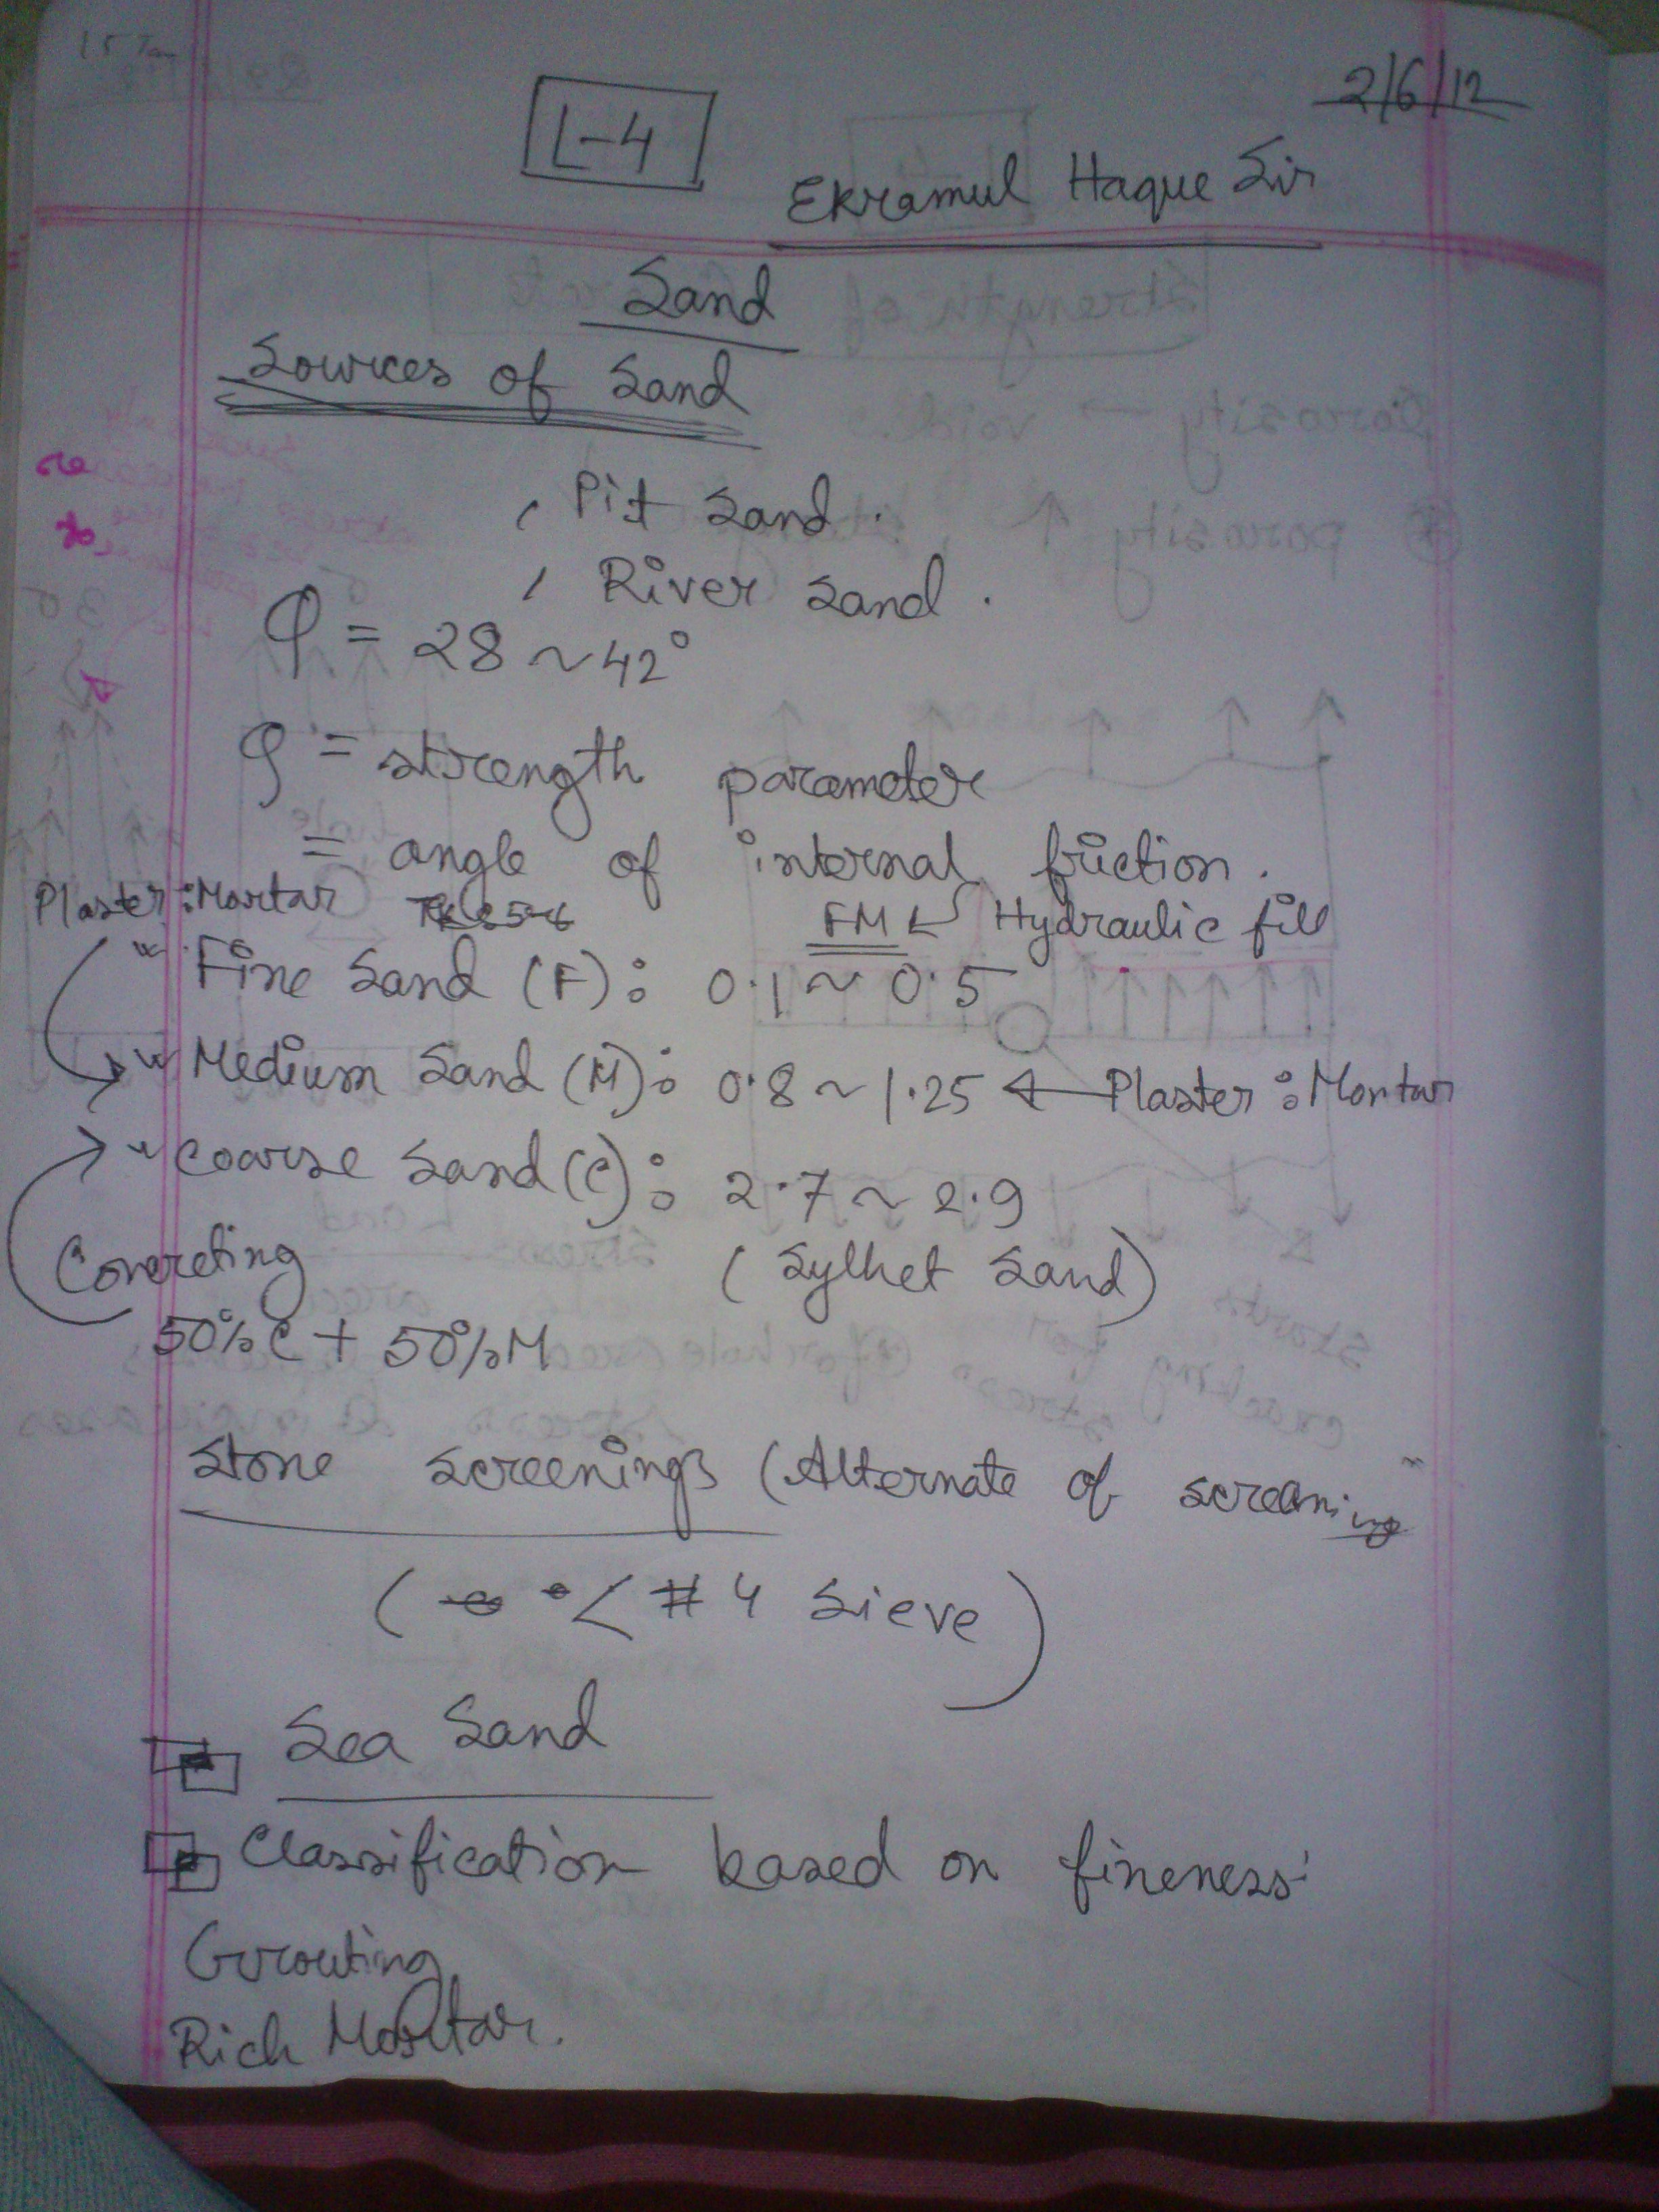 15 Jan
2/6/12
L-4
Ekramul Haque Sir
Sand
Sources of Sand
Pit Sand.
River Sand.
φ = 28 ~ 42°
φ = strength parameter
= angle of internal friction.
Plaster : Mortar
FM ← Hydraulic fill
Fine Sand (F): 0.1 ~ 0.5
Medium Sand (M): 0.8 ~ 1.25 ← Plaster : Mortar
Coarse Sand (C): 2.7 ~ 2.9
Concreting (Sylhet Sand)
50% C + 50% M
Stone screenings (Alternate of
( < #4 Sieve)
Sea Sand
Classification based on fineness
Grouting
Rich Mortar.